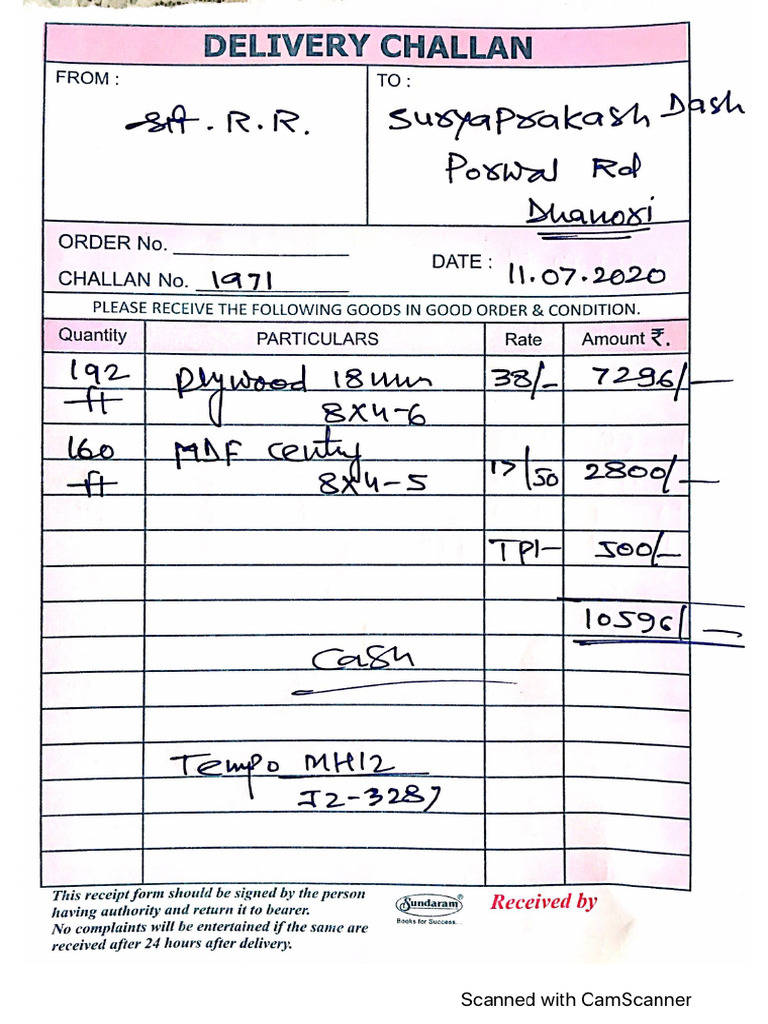 DELIVERY CHALLAN
FROM :
श्री. R. R.
TO :
Suryaprakash Dash
Porwal Rd
Dhanori
ORDER No.
CHALLAN No. 1971
DATE : 11.07.2020
PLEASE RECEIVE THE FOLLOWING GOODS IN GOOD ORDER & CONDITION.
Quantity PARTICULARS Rate Amount ₹.
192 Plywood 18mm 38/- 7296/-
ft 8X4-6
160 MDF Centry
ft 8X4-5 17/50 2800/-
TPI- 500/-
10596/-
Cash
Tempo MH12
J2-3287
This receipt form should be signed by the person
having authority and return it to bearer.
No complaints will be entertained if the same are
received after 24 hours after delivery.
Sundaram®
Books for Success...
Received by
Scanned with CamScanner